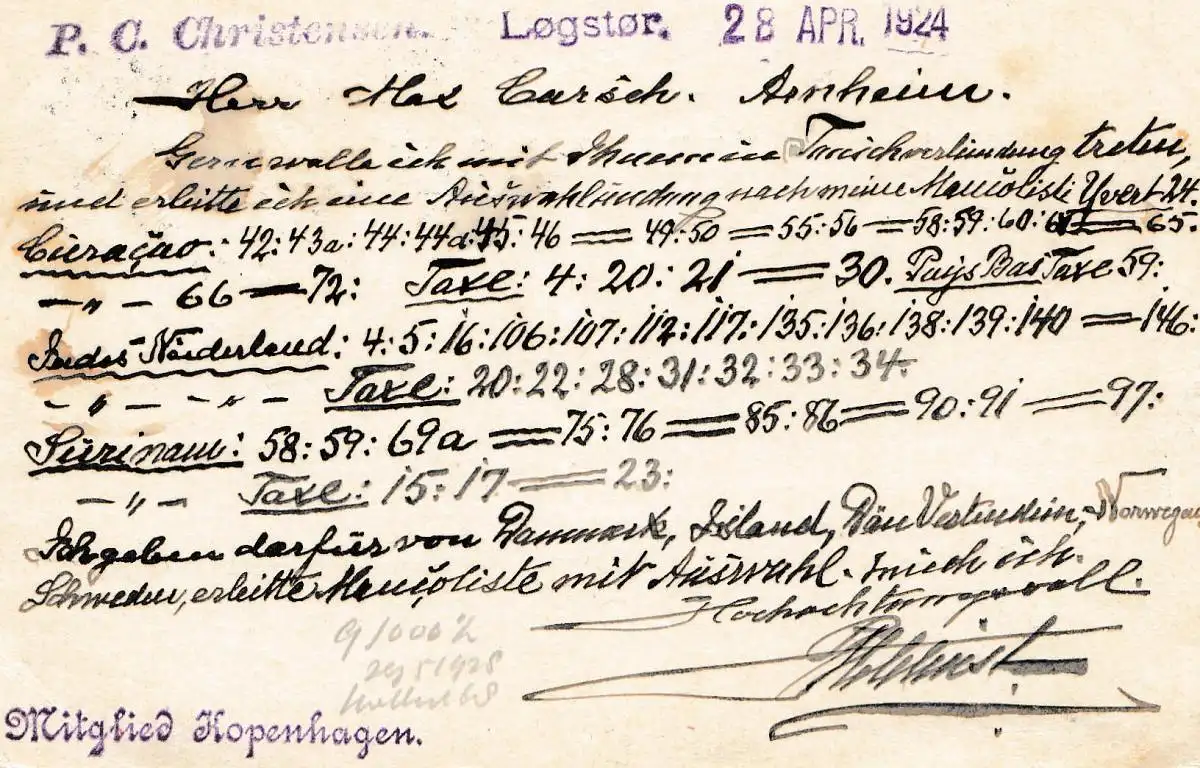 P. C. Christensen. Løgstør. 28 APR. 1924
Herr Max Carsch. Arnheim.
Gern wolle ich mit Ihnen in Tauschverbindung treten,
und erbitte ich eine Auswahlsendung nach meine Mancoliste Yvert 24.
Curaçao: 42: 43a: 44: 44d: 45: 46 = 49: 50 = 55: 56 = 58: 59: 60: = 65.
— " — 66 — 72: Taxe: 4: 20: 21 = 30. Pays Bas Taxe 59:
Indes Néiderland: 4: 5: 16: 106: 107: 112: 117: 135: 136: 138: 139: 140 = 146:
— " — — " — Taxe: 20: 22: 28: 31: 32: 33: 34.
Surinam: 58: 59: 69a = 75: 76 = 85: 86 = 90: 91 = 97:
— " — Taxe: 15: 17 = 23:
Ich geben darfür von Danmark, Island, Dän Vestindien, Norwegen
Schweden, erbitte Mancoliste mit Auswahl.
Hochachtungsvoll.
Mitglied Kopenhagen.